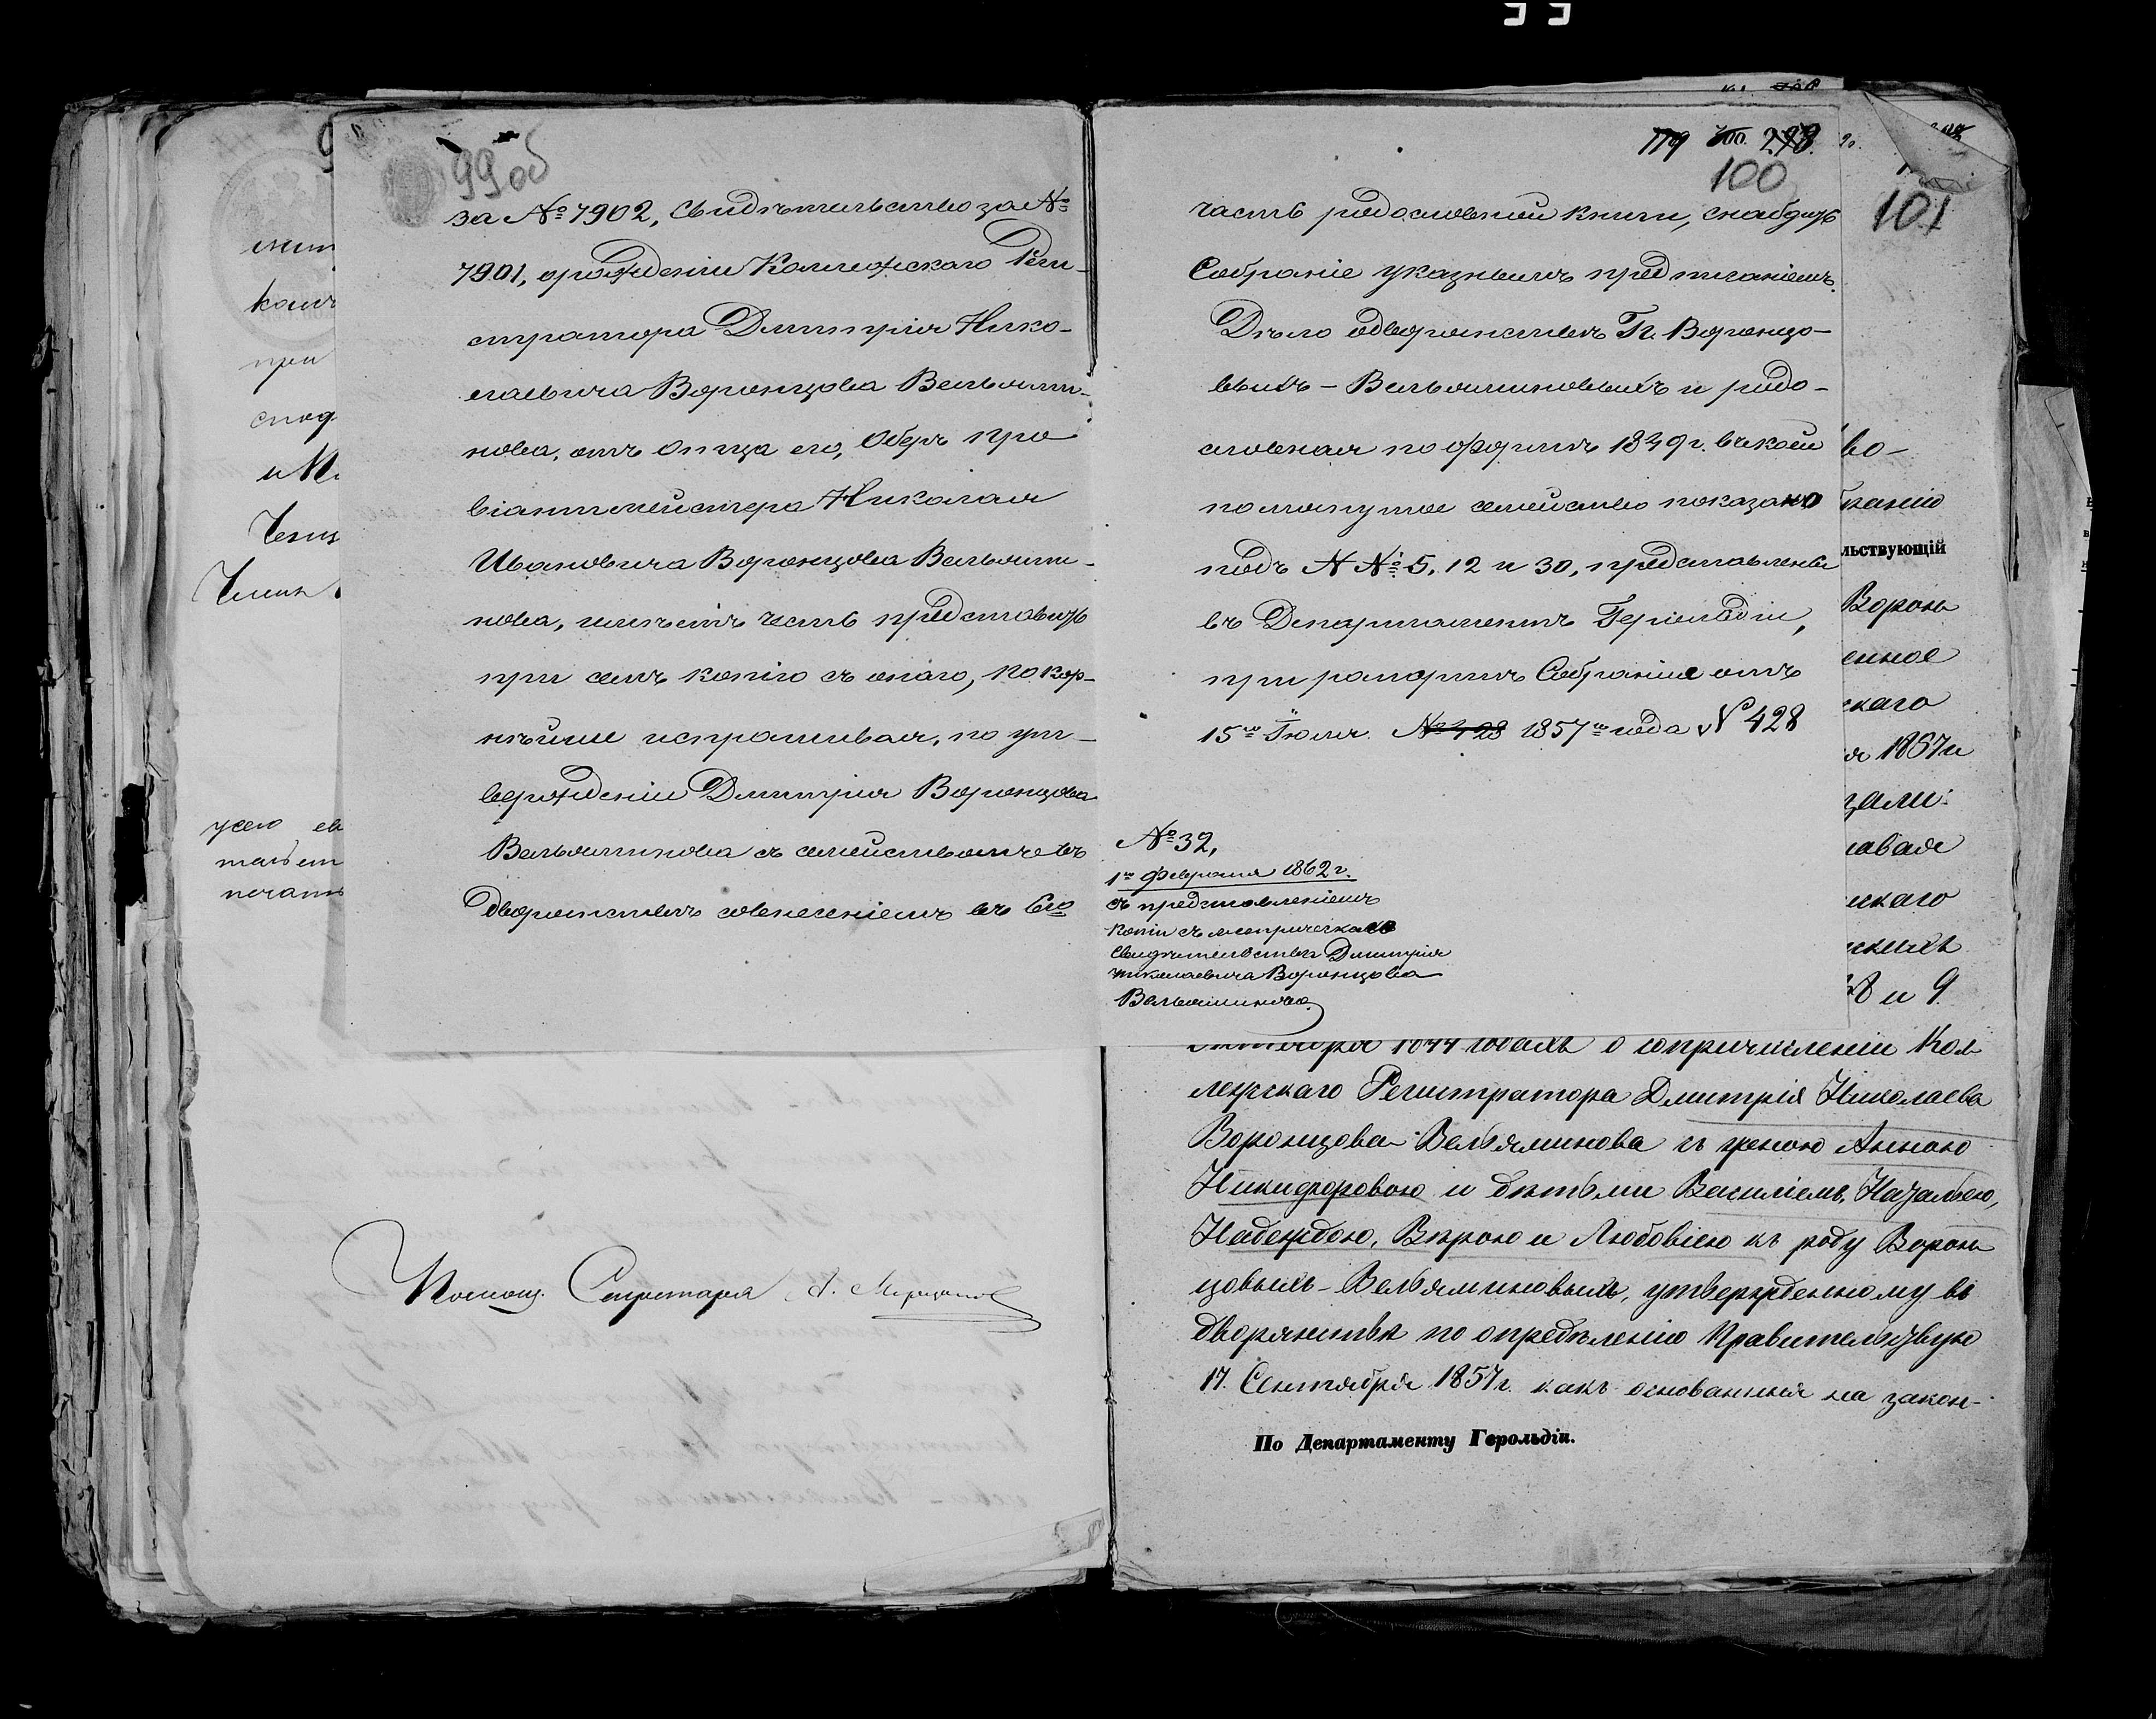 99 об
за № 7902, Свидѣтельство за №
7901, орожденіи Коллежскаго Реги-
стратора Дмитрія Нико-
лаевича Воронцова Вельями-
нова, отъ Отца его, Оберъ про
віантмейстера Николая
Ивановича Воронцова Вельями-
нова, имѣетъ честь представить
при семъ копію съ онаго, покор-
нѣйше испрашивая, по ут-
вержденіи Дмитрія Воронцова
Вельяминова съ семействомъ въ
Дворянствѣ совнесеніемъ въ 6ю
119 100. 298.
100
часть родословной книги, снабдить
Собраніе указнымъ предписаніемъ.
Дѣло одворянствѣ Гг. Воронцо-
выхъ - Вельяминовыхъ и родо-
словная по формѣ 1849 г. въ коей
помянутое семейство показано
подъ N №. 5, 12 и 30, представлены
въ Департаментъ Герольдіи,
при рапортѣ Собранія отъ
15го Іюля № 428 1857го года № 428
№ 32,
1го Февраля 1862 г.
съ представленіемъ
копіи съ метрическаго
свидѣтельства Дмитрія
Николаевича Воронцова
Вельяминова.
101
во-
ранію
льствующій
Ворон
енное
скаго
я 1857 и
зали:
8 и 9.
Октября 1844 годахъ о сопричисленіи Кол-
лежскаго Регистратора Дмитрія Николаева
Воронцова-Вельяминова съ женою Анною
Никифоровою и дѣтьми Василіемъ, Натальею,
Надеждою, Вѣрою и Любовію къ роду Ворон
цовыхъ-Вельяминовыхъ, утвержденному въ
дворянствѣ по опредѣленію Правительствую
17. Сентября 1857 г. какъ основанныя на закон-
По Департаменту Герольдіи.
кол
при
спод
и М
усего
печат
Помощ. Секретаря А.